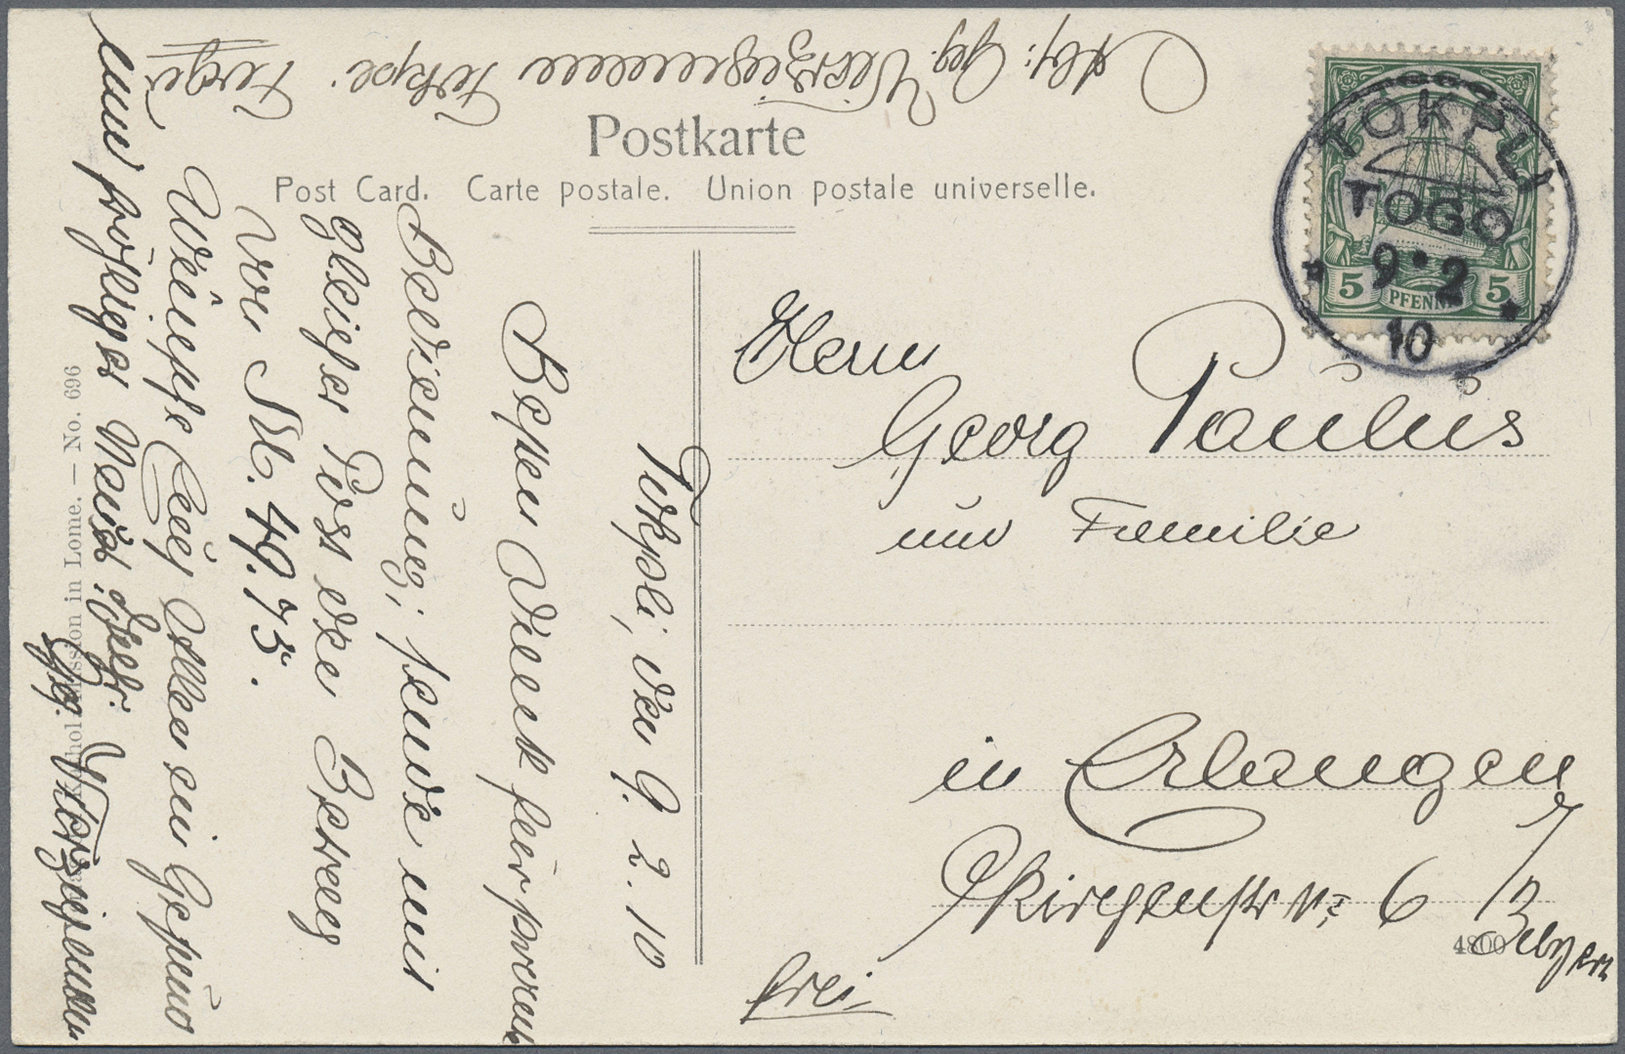 Postkarte
Post Card. Carte postale. Union postale universelle.
TOKPLI
TOGO
9.2
10
5 PFENNIG 5
Herrn
Georg Paulus
und Familie
in Erlangen
Kirchenstr Nr 6
Bayern
frei
4800
Tokpli, den 9. 2. 10
Besten Dank für
Bedienung; sende mit
gleicher Post den Betrag
von M. 49.75.
Wünsche Euch Allen ein Gesund
und fröhliges Neues Jahr.
Gg.
Abs: Gg. Tokpli Togo
Mission in Lome. — No. 696